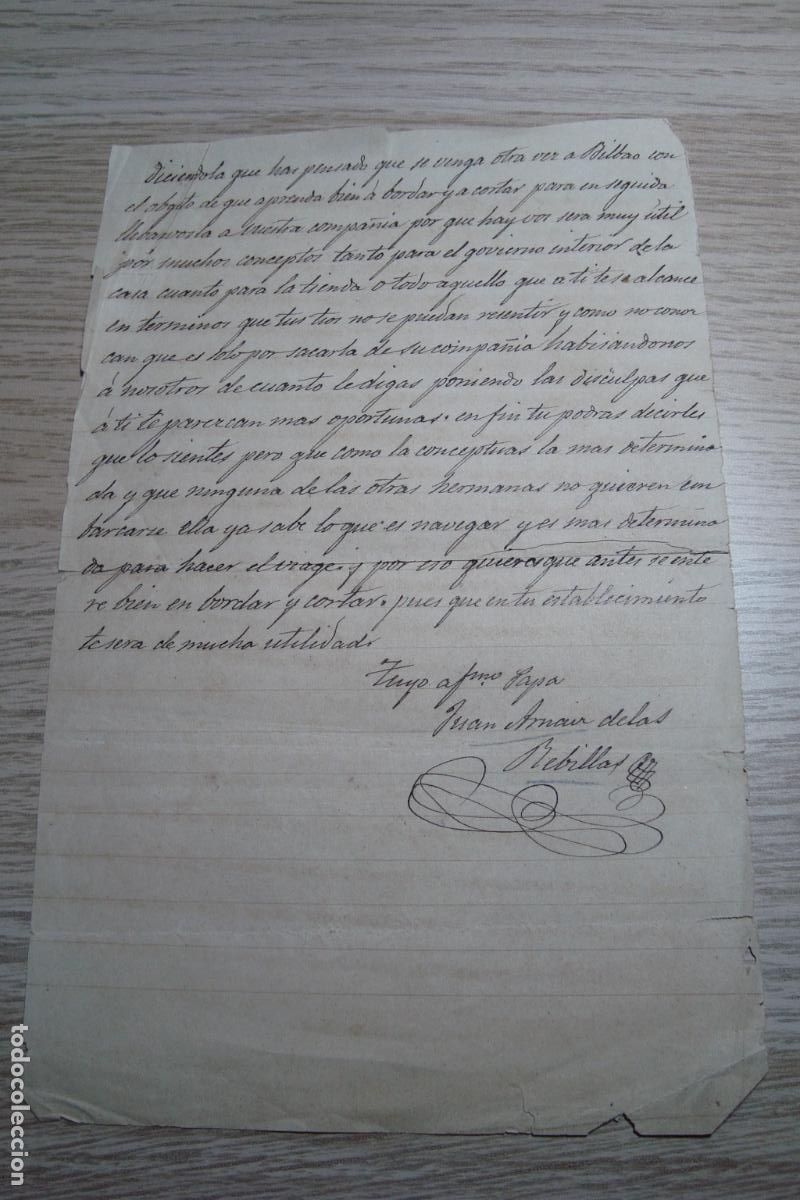 diciendola que has pensado que se venga otra vez a Bilbao con
el obgeto de que aprenda bien á bordar y a cortar para en seguida
llebarosla a vuestra compañia por que hay vos sera muy útil
por muchos conceptos tanto para el govierno interior de la
casa cuanto para la tienda o todo aquello que a ti te se alcance
en terminos que tus tios no se puedan resentir y como no conoz
can que es solo por sacarla de su compañia habisandonos
á nosotros de cuanto le digas poniendo las disculpas que
á ti te parezcan mas oportunas. en fin tu podras decirles
que lo sientes pero que como la conceptuas la mas determina
da y que ninguna de las otras hermanas no quieren em
barcarse ella ya sabe lo que es navegar y es mas determina
da para hacer el viage. y por eso quieres que antes se ente
re bien en bordar y cortar. pues que en tu establecimiento
te sera de mucha utilidad.
Tuyo afmo Papa
Juan Arnaiz de las
Rebillas
todocoleccion